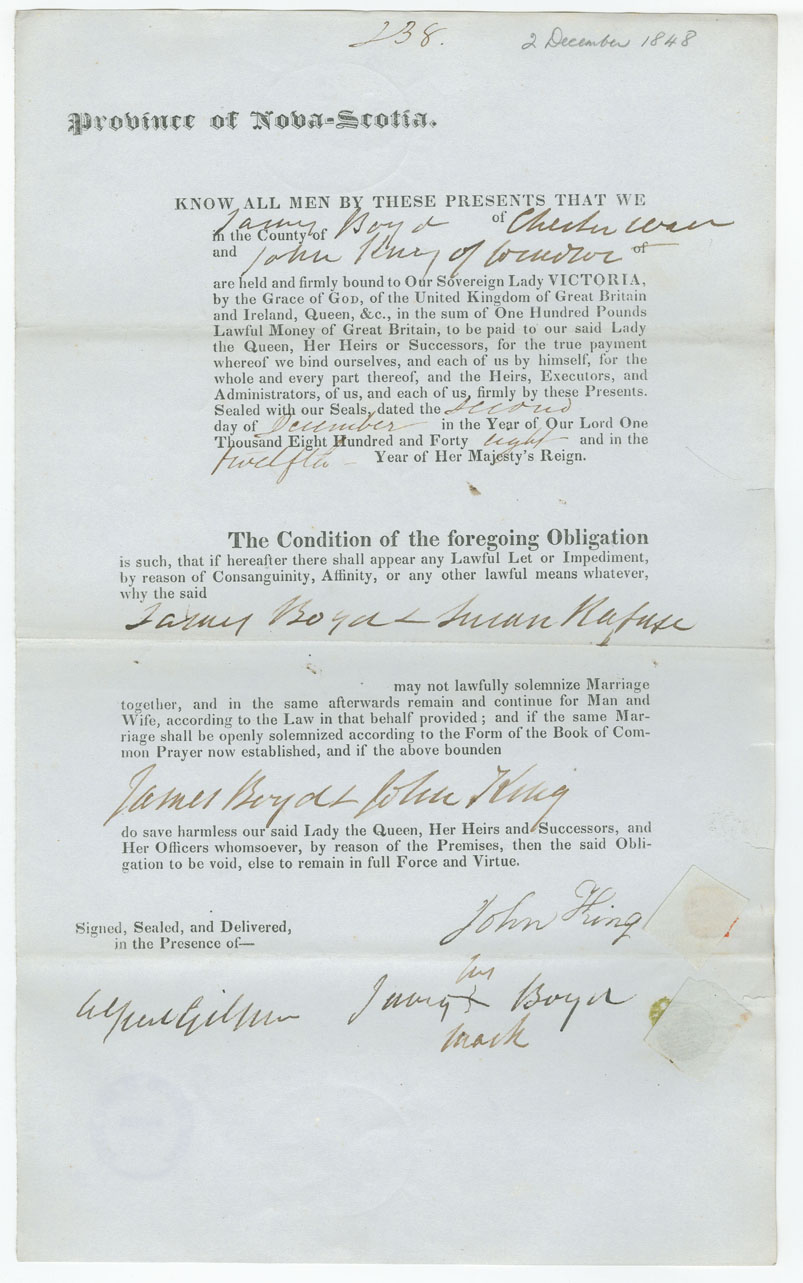 238.
2 December 1848
Province of Nova-Scotia.
KNOW ALL MEN BY THESE PRESENTS THAT WE
James Boyd of Chester
in the County of
and John King of Windsor of
are held and firmly bound to Our Sovereign Lady VICTORIA,
by the Grace of GOD, of the United Kingdom of Great Britain
and Ireland, Queen, &c., in the sum of One Hundred Pounds
Lawful Money of Great Britain, to be paid to our said Lady
the Queen, Her Heirs or Successors, for the true payment
whereof we bind ourselves, and each of us by himself, for the
whole and every part thereof, and the Heirs, Executors, and
Administrators, of us, and each of us, firmly by these Presents.
Sealed with our Seals, dated the second
day of December in the Year of Our Lord One
Thousand Eight Hundred and Forty eight and in the
twelfth Year of Her Majesty's Reign.
The Condition of the foregoing Obligation
is such, that if hereafter there shall appear any Lawful Let or Impediment,
by reason of Consanguinity, Affinity, or any other lawful means whatever,
why the said
James Boyd & Susan Rafuse
may not lawfully solemnize Marriage
together, and in the same afterwards remain and continue for Man and
Wife, according to the Law in that behalf provided ; and if the same Mar-
riage shall be openly solemnized according to the Form of the Book of Com-
mon Prayer now established, and if the above bounden
James Boyd & John King
do save harmless our said Lady the Queen, Her Heirs and Successors, and
Her Officers whomsoever, by reason of the Premises, then the said Obli-
gation to be void, else to remain in full Force and Virtue.
John King
Signed, Sealed, and Delivered,
in the Presence of—
his
James X Boyd
mark